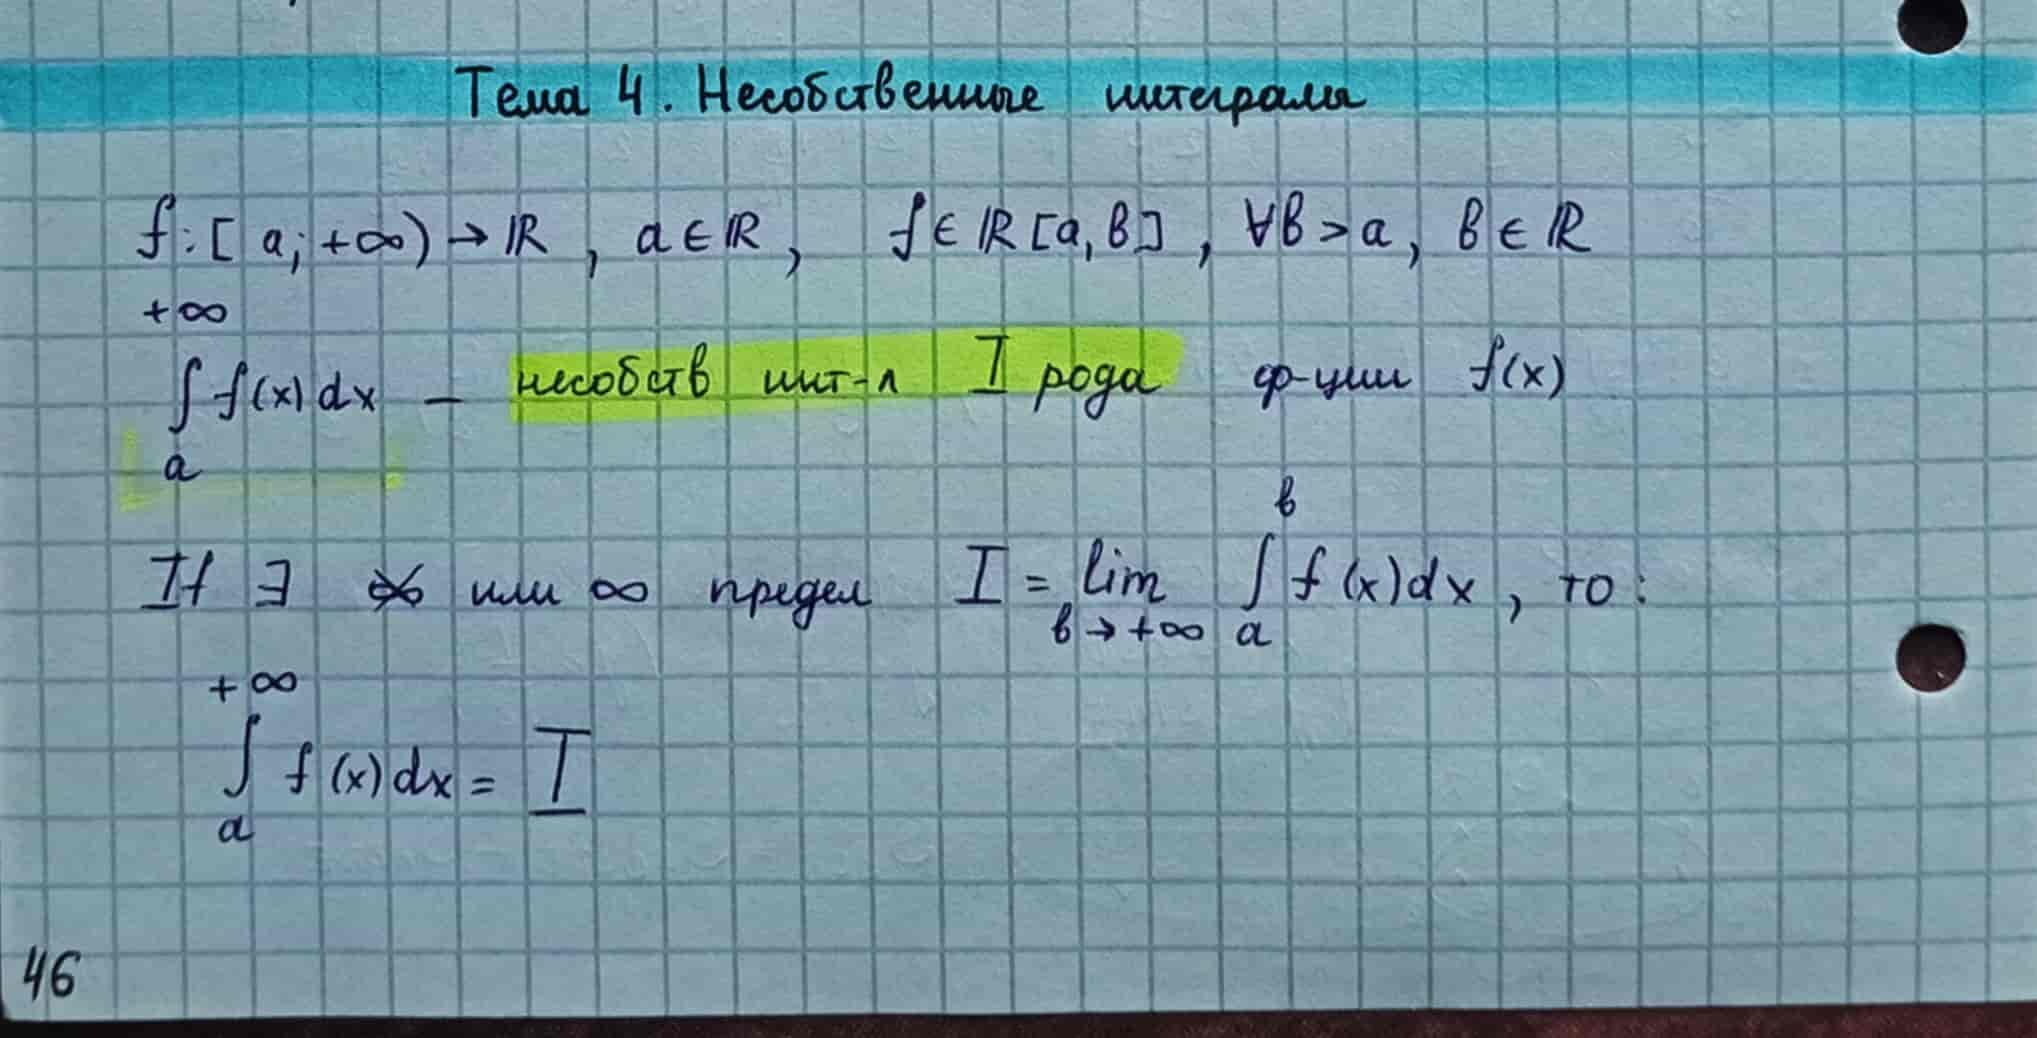 Тема 4. Несобственные интегралы
f: [a; +∞) → ℝ, a ∈ ℝ, f ∈ ℝ[a, b], ∀b > a, b ∈ ℝ
+∞
∫ f(x) dx – несобств инт-л I рода ф-ции f(x)
a
b
If ∃ ∞̸ или ∞ предел I = lim ∫ f(x)dx, то:
b → +∞ a
+∞
∫ f(x)dx = I
a
46